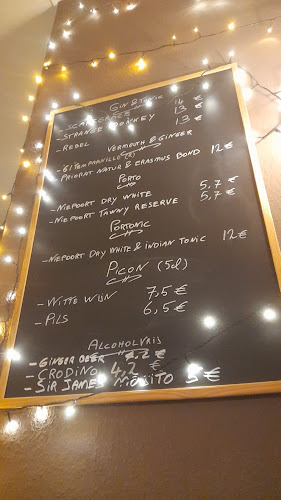 GIN & TONIC
14 €
13 €
- STRANGE DONKEY 13 €
- REBEL
VERMOUTH & GINGER
PRIORAT NATUR & ERASMUS BOND 12 €
PORTO
- NIEPOORT DRY WHITE 5,7 €
- NIEPOORT TAWNY RESERVE 5,7 €
PORTONIC
- NIEPOORT DRY WHITE & INDIAN TONIC 12 €
PICON (5cl)
- WITTE WIJN 7,5 €
- PILS 6,5 €
ALCOHOLVRIJ
- GINGER BEER 4,2 €
- CRODINO 4,2 €
- SIR JAMES MOJITO 5 €